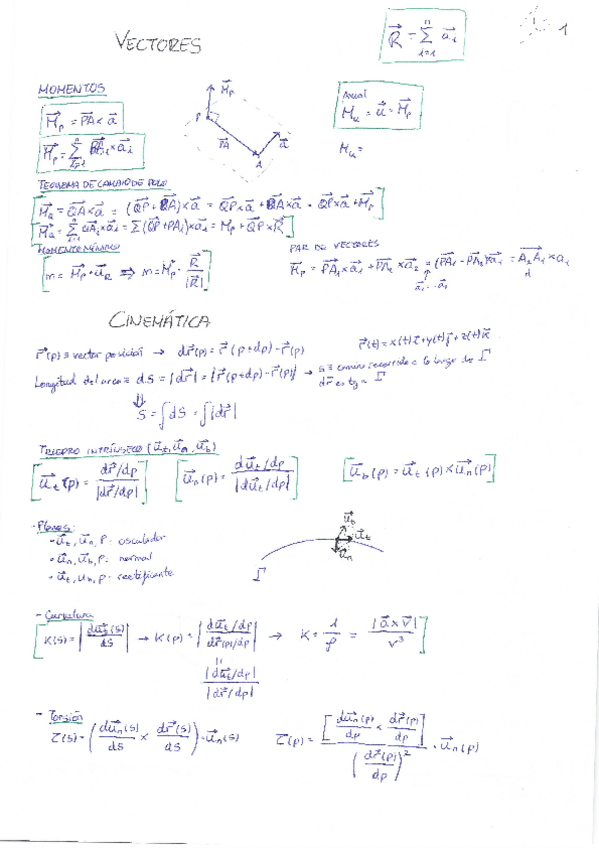 1
VECTORES
R⃗ = Σ_{i=1}^{n} a⃗_i
MOMENTOS
M⃗_P = P⃗A × a⃗
M⃗_P
P
PA
a⃗
A
M_u = u⃗ · M⃗_P
M_u =
TEOREMA DE CAMBIO DE POLO
M⃗_Q = Q⃗A × a⃗ = (Q⃗P + P⃗A) × a⃗ = Q⃗P × a⃗ + P⃗A × a⃗ = Q⃗P × a⃗ + M⃗_P
MOMENTO MÍNIMO
m = M⃗_P · u⃗_R ⇒ m = M⃗_P · R⃗/|R⃗|
PAR DE VECTORES
CINEMÁTICA
r⃗(p) ≡ vector posición → dr⃗(p) = r⃗(p+dp) - r⃗(p)
r⃗(t) = x(t)i⃗ + y(t)j⃗ + z(t)k⃗
Longitud del arco ≡ dS = |dr⃗| = |r⃗(p+dp) - r⃗(p)| → s ≡ camino recorrido a lo largo de Γ
dr⃗ es tg a Γ
⇓
S = ∫dS = ∫|dr⃗|
TRIEDRO INTRÍNSECO (u⃗_t, u⃗_n, u⃗_b)
u⃗_t(p) = (dr⃗/dp)/|dr⃗/dp|
u⃗_n(p) = (du⃗_t/dp)/|du⃗_t/dp|
u⃗_b(p) = u⃗_t(p) × u⃗_n(p)
- Planos:
• u⃗_t, u⃗_n, P: osculador
• u⃗_n, u⃗_b, P: normal
• u⃗_t, u_b, P: rectificante
u⃗_b
u⃗_t
u⃗_n
Γ
- Curvatura
→ K(p) = |(du⃗_t/dp)/(dr⃗(p)/dp)| → K = 1/ρ = |a⃗ × v⃗|/v³
=
|du⃗_t/dp|/|dr⃗/dp|
- Torsión
τ(s) = (du⃗_n(s)/ds × dr⃗(s)/ds) · u⃗_n(s)
τ(p) = [du⃗_n(p)/dp × dr⃗(p)/dp]/(dr⃗(p)/dp)² · u⃗_n(p)